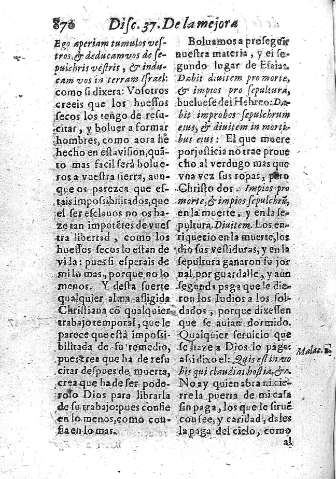 870 Disc. 37. De la mejora
Ego aperiam tumulos ves-
tros, & deducam vos de se-
pulchris vestris, & indu-
cam vos in terram Israel:
como si dixera: Vosotros
creeis que los huessos
secos los tengo de resu-
citar, y boluer a formar
hombres, como aora he
hecho en esta visiõ, quã-
to mas facil será bolue-
ros a vuestra tierra, aun-
que os parezca que es-
tais impossibilitados, que
el ser esclauos no os ha-
ze tan impotētes de vues-
tra libertad, como los
huessos secos lo estan de
vida: pues si esperais de
mi lo mas, porque no lo
menos. Y desta suerte
qualquier alma afligida
Christiana cõ qualquier
trabajo temporal, que le
parece que està impossi-
bilitada de su remedio,
pues cree que ha de resu-
citar despues de muerta,
crea que ha de ser pode-
roso Dios para librarla
de su trabajo: pues confie
en lo menos, como con-
fia en lo mas.
Boluamos a proseguir
nuestra materia, y el se-
gundo lugar de Esaias.
Dabit diuitem pro morte,
& impios pro sepultura,
buelue se del Hebreo: Da-
bit improbos sepulchrum
eius, & diuitem in morti-
bus eius: El que muere
por justicia no trae proue
cho al verdugo mas que
vna vez sus ropas, pero
Christo dos. Impios pro
morte, & impios sepulchrũ,
en la muerte, y en la se-
pultura. Diuitem. Los en-
riquecio en la muerte, los
dio sus vestiduras, y en la
sepultura ganaron su jor
nal por guardalle, y aun
segunda paga que le die-
ron los Iudios a los sol-
dados, porque dixessen
que se auian dormido.
Qualquier seruicio que
se haze a Dios lo paga:
assi dixo el: Quis est in vo
bis qui claudat hostia, &c.
No ay quien abra ni cier-
re la puerta de mi casa
sin paga, los que le sirué
con fee, y caridad, dales
la paga del cielo, como
al
Malac.